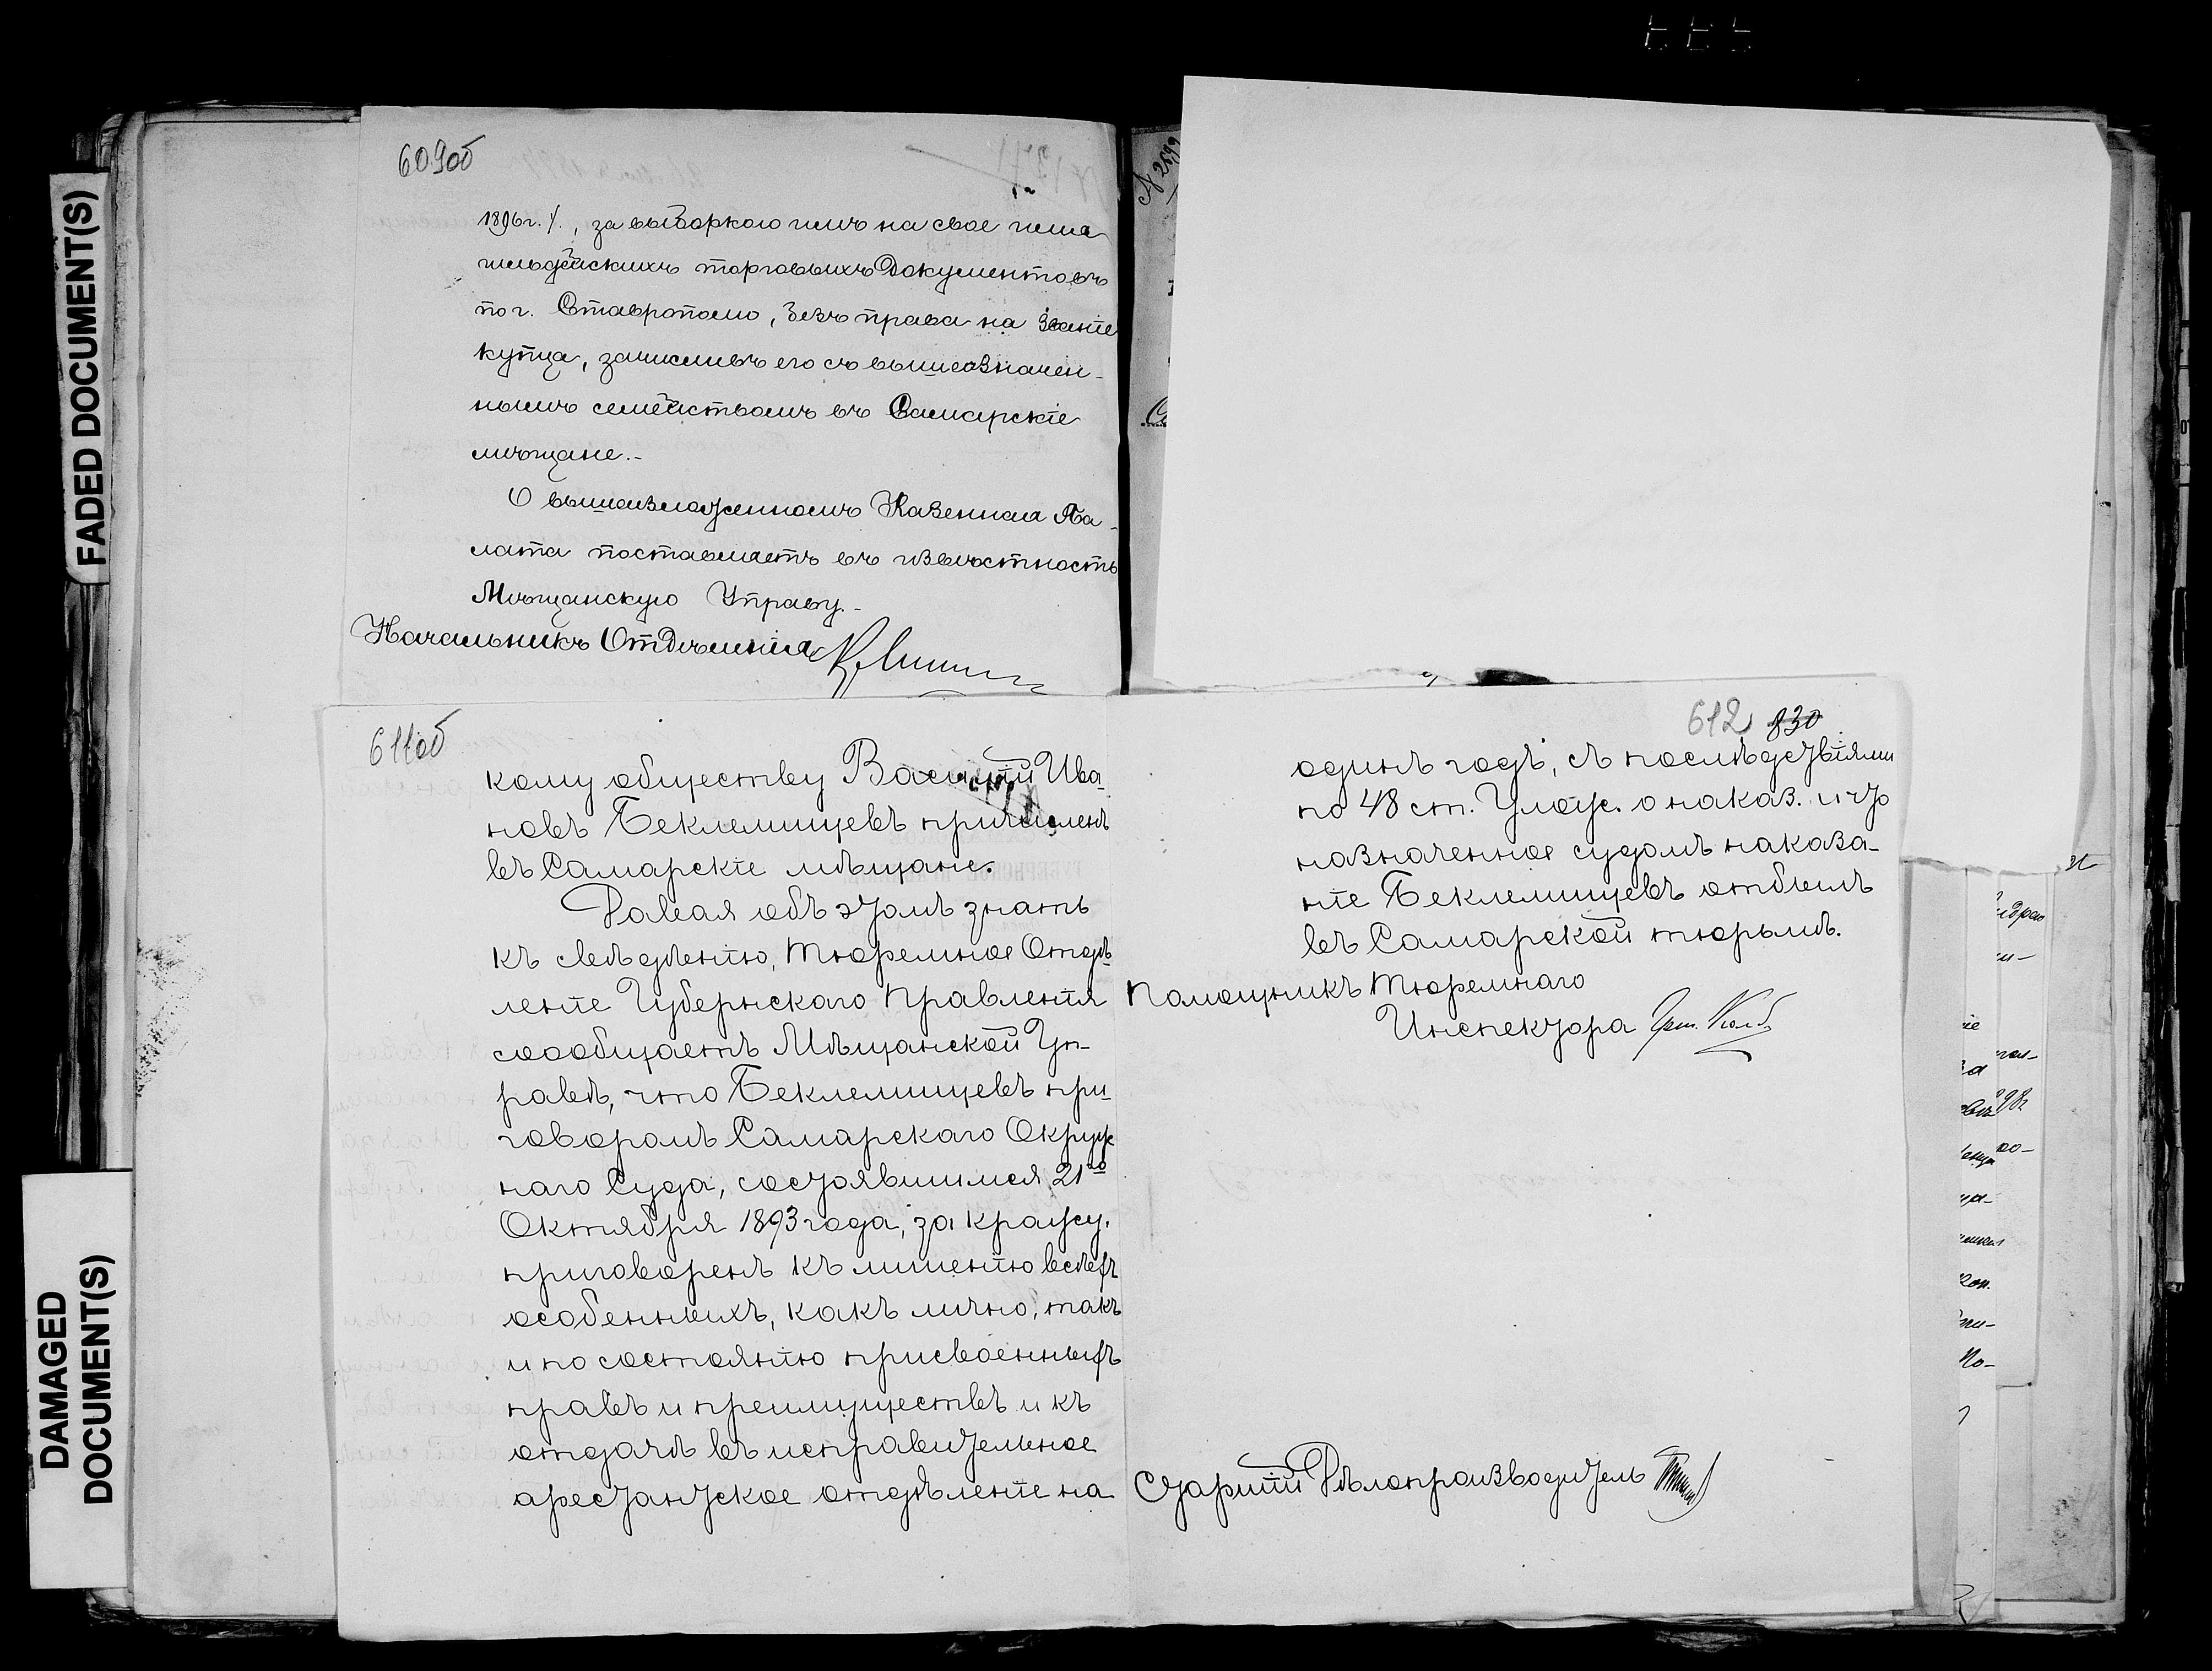 FADED DOCUMENT(S)
DAMAGED
DOCUMENT(S)
609об
1896г. /., за выборкою имъ на свое имя
гильдейскихъ торговыхъ документовъ
по г. Ставрополю, безъ права на званіе
купца, зачисливъ его съ вышеозначен-
нымъ семействомъ въ Самарскіе
мѣщане.-
О вышеизложенномъ Казенная Па-
лата поставляетъ въ извѣстность
Мѣщанскую Управу.-
Начальникъ Отдѣленія
611об
кому обществу Василій Ива-
новъ Беклемищевъ причисленъ
въ Самарскіе мѣщане.
Давая объ этомъ знать
къ свѣдѣнію, Тюремное Отдѣ-
леніе Губернскаго Правленія
сообщаетъ Мѣщанской Уп-
равѣ, что Беклемищевъ при-
говоромъ Самарскаго Окруж
наго Суда, состоявшимся 21го
Октября 1893 года, за кражу,
приговоренъ къ лишенію всѣхъ
особенныхъ, какъ лично, такъ
и по состоянію присвоенныхъ
правъ и преимуществъ и къ
отдачѣ въ исправительное
арестантское отдѣленіе на
612 830
одинъ годъ, съ послѣдствіями
по 48 ст. Улож. о наказ. и что
назначенное судомъ наказа-
ніе Беклемищевъ отбылъ
въ Самарской тюрьмѣ.
Помощникъ Тюремнаго
Инспектора
Старшій Дѣлопроизводитель